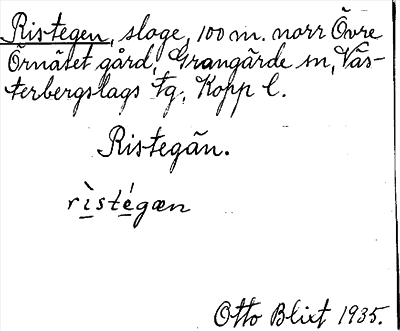 Ristegen, sloge, 100 m. norr Övre
Örnätet gård, Grangärde sn, Väs-
terbergslags tg, Kopp l.
Ristegän.
rìstégæn
Otto Blixt 1935.